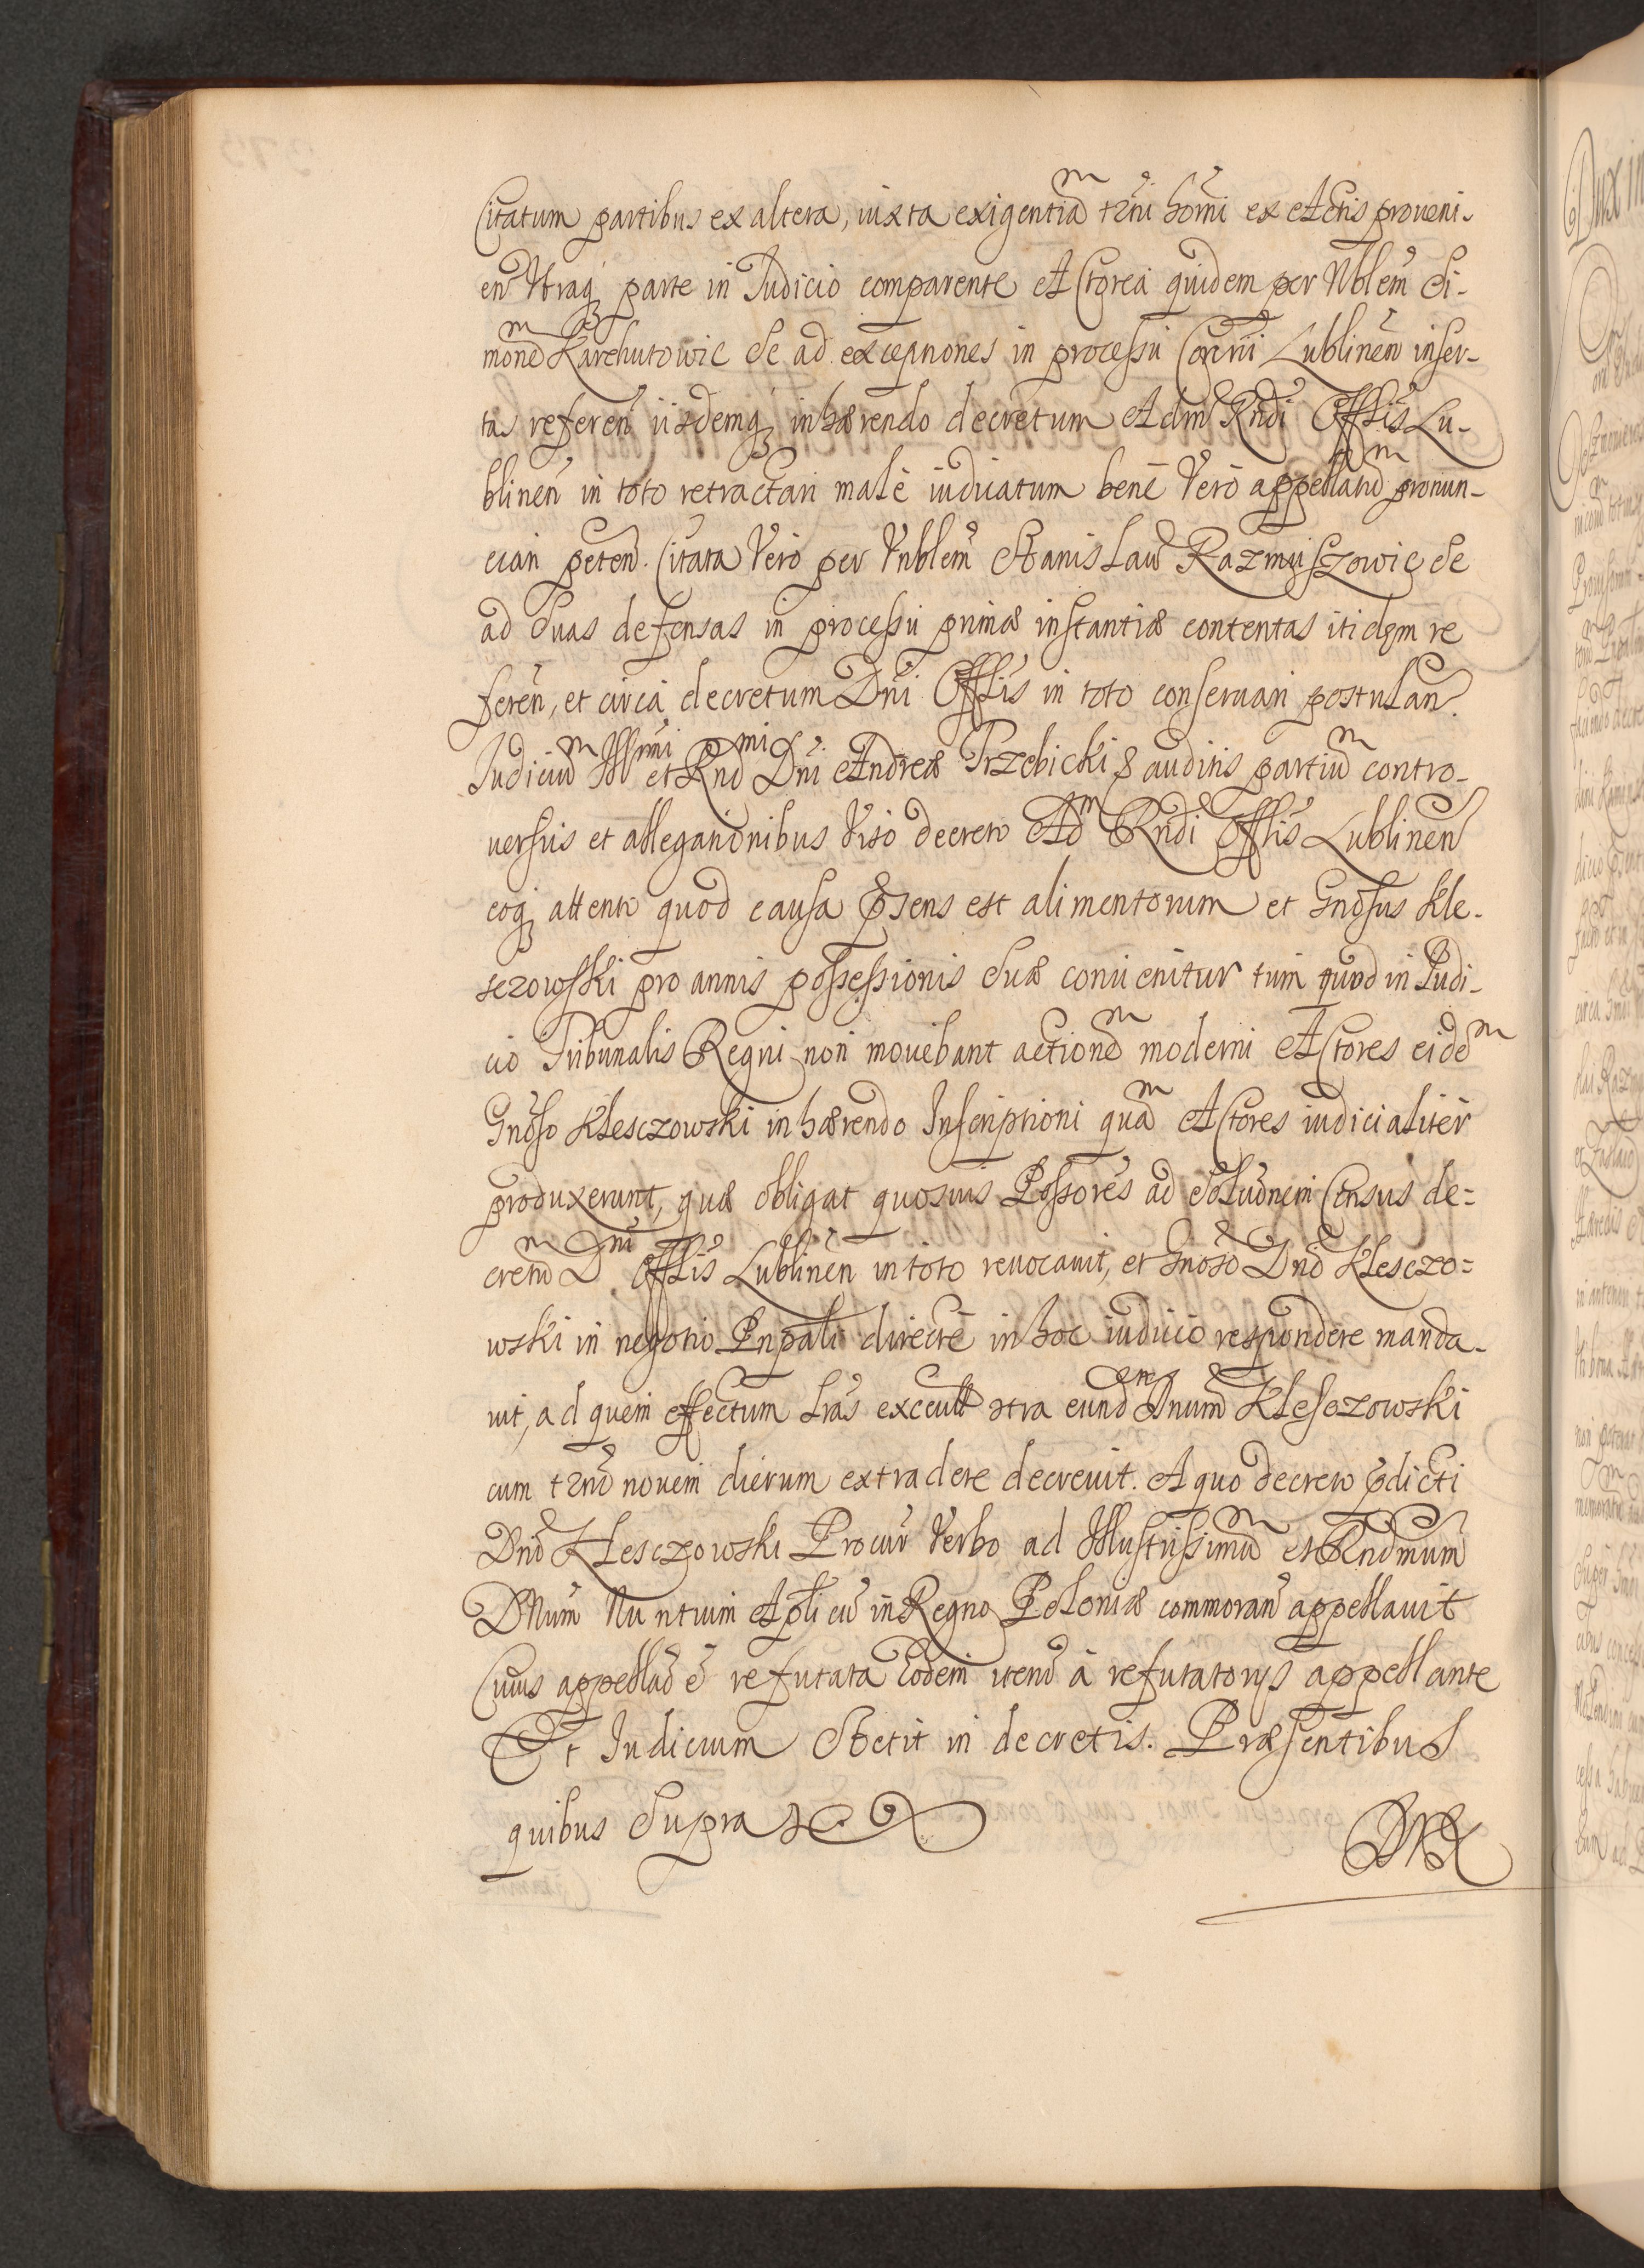 Citatum partibus ex altera, iuxta exigentiam tñi hõrni ex Actis proueni-
eñ Vtraq̃ parte in Iudicio comparente Actorea quidem per Nblem Si-
monem Karchutowic Se ad exceptiones in processu Consrii Lublineñ inser-
tas refereñ iisdemq̃ inhærendo decretum Adm Rndi Offlis Lu-
blineñ in toto retractari malè iudicatum benè Verò appellatum pronun-
ciari peteñ. Citata Verò per Vnblem Stanislaũ Razmusczowic Se
ad Suas defensas in processu primæ instantiæ contentas itidem re
fereñ, et circa decretum Dñi Offlis in toto conseruari postulañ.
Iudicium Illmi et Rndmi Dñi Andreæ Trzebicki & auditis partium contro-
uersiis et allegationibus Viso decreto Adm Rndi Offlis Lublineñ
eoq̃ attento quod causa p̃sens est alimentorum et Gnosus Kle-
sczowski pro annis possessionis Suæ conuenitur tum quod in Iudi-
cio Tribunalis Regni non mouebant actionem moderni Actores eidem
Gnoso Klesczowski inhærendo Inscriptioni quam Actores iudicialiter
produxerunt, quæ obligat quosuis Possores ad Solutnem Census de-
cretum Dni Offlis Lublineñ in toto reuocauit, et Gnoso Dno Klesczo-
wski in negotio Pnpali directè in hoc iudicio respondere manda-
uit, ad quem effectum Lras exceutt ɔtra eundem Dnum Klesczowski
cum tñõ nouem dierum extradere decreuit. A quo decreto p̃dicti
Dnĩ Klesczowski Procur Verbo ad Illustrissimum et Rndmum
Dnum Nuntium Aplicũ in Regno Poloniæ commorañ appellauit
Cuius appellaõ ẽ refutata Eodem iteñ à refutatorijs appellante
Et Iudicium Stetit in decretis. Præsentibus
quibus Supra